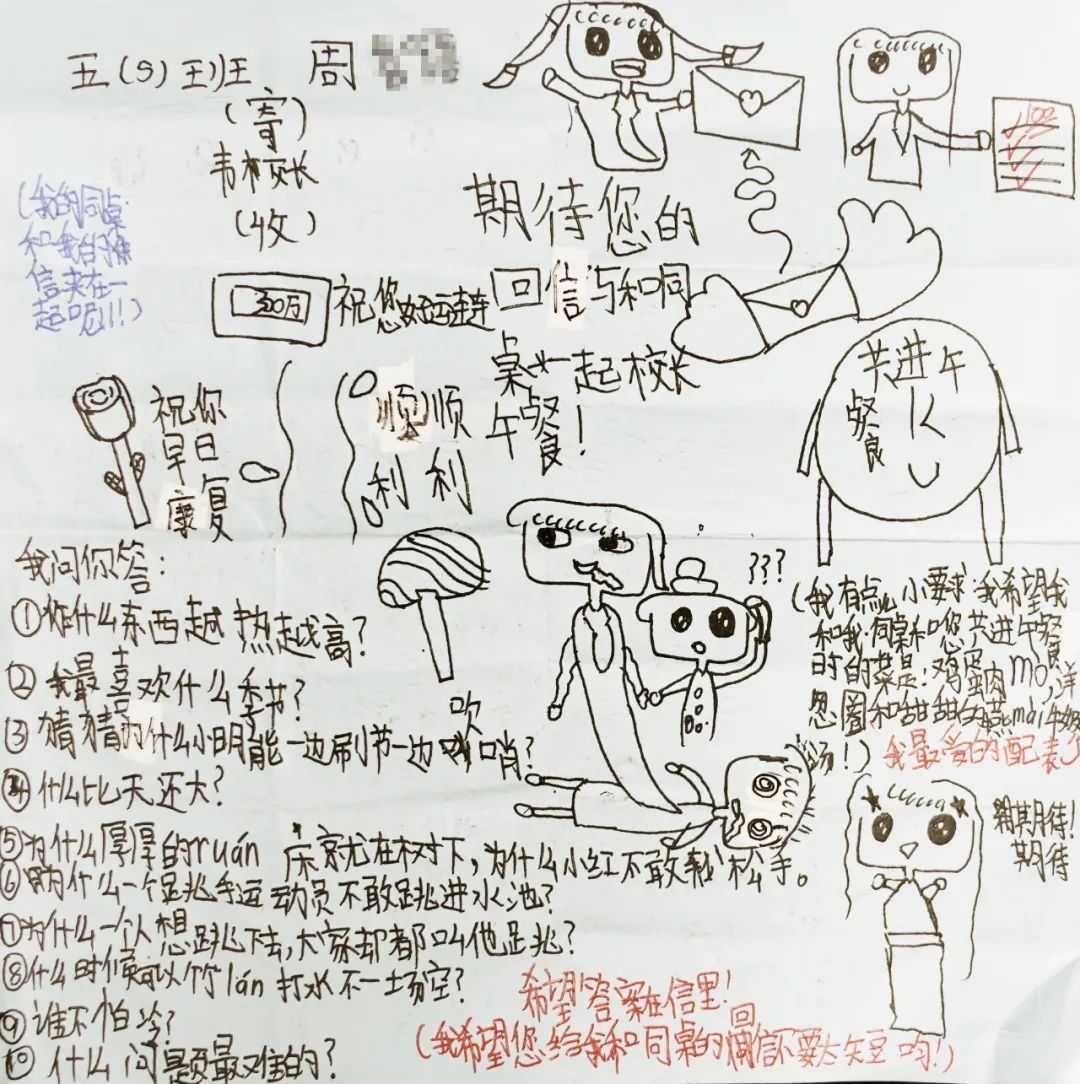 五(9)班 周
(寄)
韦校长
(收)
100
(我的同桌
和我的
信夹在一
起呢!!!)
期待您的
回信与和同
桌一起校长
午餐!
500万
祝您好运连连
祝你
早日
康复
顺顺
利利
共进午
餐
我问你答:
①什么东西越热越高?
②我最喜欢什么季节?
③猜猜为什么小明能一边刷牙一边吹哨?
④什么比天还大?
⑤为什么厚厚的ruán床就在树下,为什么小红不敢松手。
⑥为什么一个跳水运动员不敢跳进水池?
⑦为什么一个人想跳下去,大家却都叫他跳?
⑧什么时候可以竹lán打水不一场空?
⑨谁不怕冷?
⑩什么问题最难的?
???
(我有点小要求:我希望我
和我同桌和您共进午餐
时的菜是:鸡蛋肉mò,洋
葱圈和甜甜的燕mài牛奶
汤!)
我最爱的配表
期待!
期待
希望答案在信里!
(我希望您给我和同桌的回信不要太短哟!)